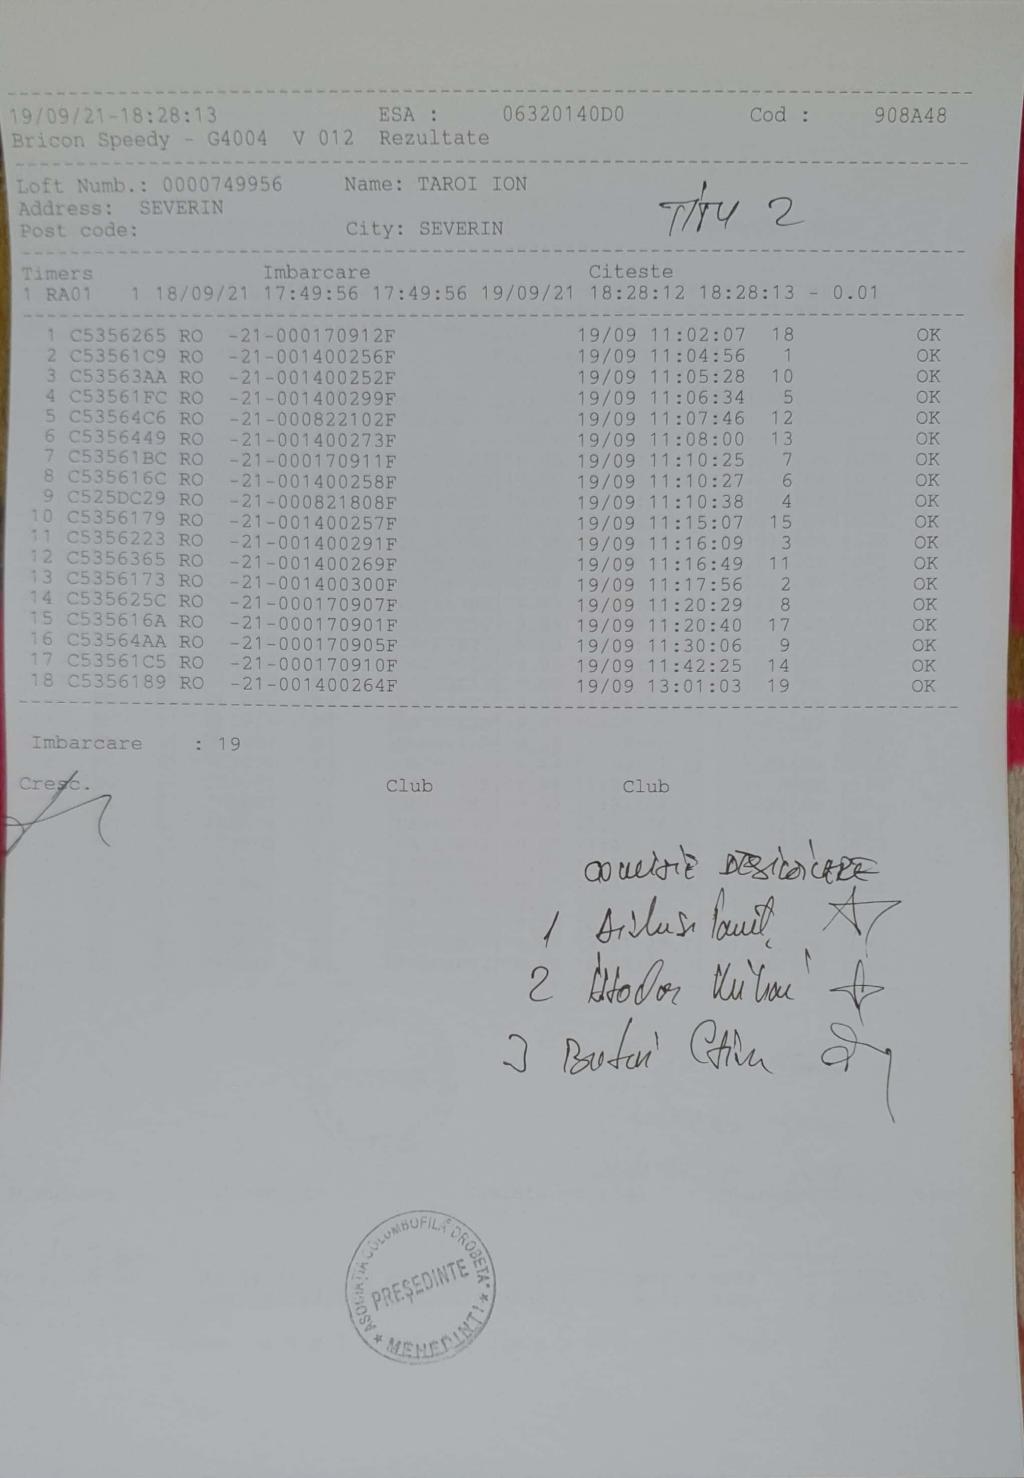 19/09/21-18:28:13 ESA : 06320140D0 Cod : 908A48
Bricon Speedy - G4004 V 012 Rezultate
Loft Numb.: 0000749956 Name: TAROI ION
Address: SEVERIN
TITU 2
Post code: City: SEVERIN
Timers Imbarcare Citeste
1 RA01 1 18/09/21 17:49:56 17:49:56 19/09/21 18:28:12 18:28:13 - 0.01
1 C5356265 RO -21-000170912F 19/09 11:02:07 18 OK
2 C53561C9 RO -21-001400256F 19/09 11:04:56 1 OK
3 C53563AA RO -21-001400252F 19/09 11:05:28 10 OK
4 C53561FC RO -21-001400299F 19/09 11:06:34 5 OK
5 C53564C6 RO -21-000822102F 19/09 11:07:46 12 OK
6 C5356449 RO -21-001400273F 19/09 11:08:00 13 OK
7 C53561BC RO -21-000170911F 19/09 11:10:25 7 OK
8 C535616C RO -21-001400258F 19/09 11:10:27 6 OK
9 C525DC29 RO -21-000821808F 19/09 11:10:38 4 OK
10 C5356179 RO -21-001400257F 19/09 11:15:07 15 OK
11 C5356223 RO -21-001400291F 19/09 11:16:09 3 OK
12 C5356365 RO -21-001400269F 19/09 11:16:49 11 OK
13 C5356173 RO -21-001400300F 19/09 11:17:56 2 OK
14 C535625C RO -21-000170907F 19/09 11:20:29 8 OK
15 C535616A RO -21-000170901F 19/09 11:20:40 17 OK
16 C53564AA RO -21-000170905F 19/09 11:30:06 9 OK
17 C53561C5 RO -21-000170910F 19/09 11:42:25 14 OK
18 C5356189 RO -21-001400264F 19/09 13:01:03 19 OK
Imbarcare : 19
Cresc. Club Club
1
2
3
ASOCIAȚIA COLUMBOFILĂ DROBETA
PREȘEDINTE
* MEHEDINȚI *